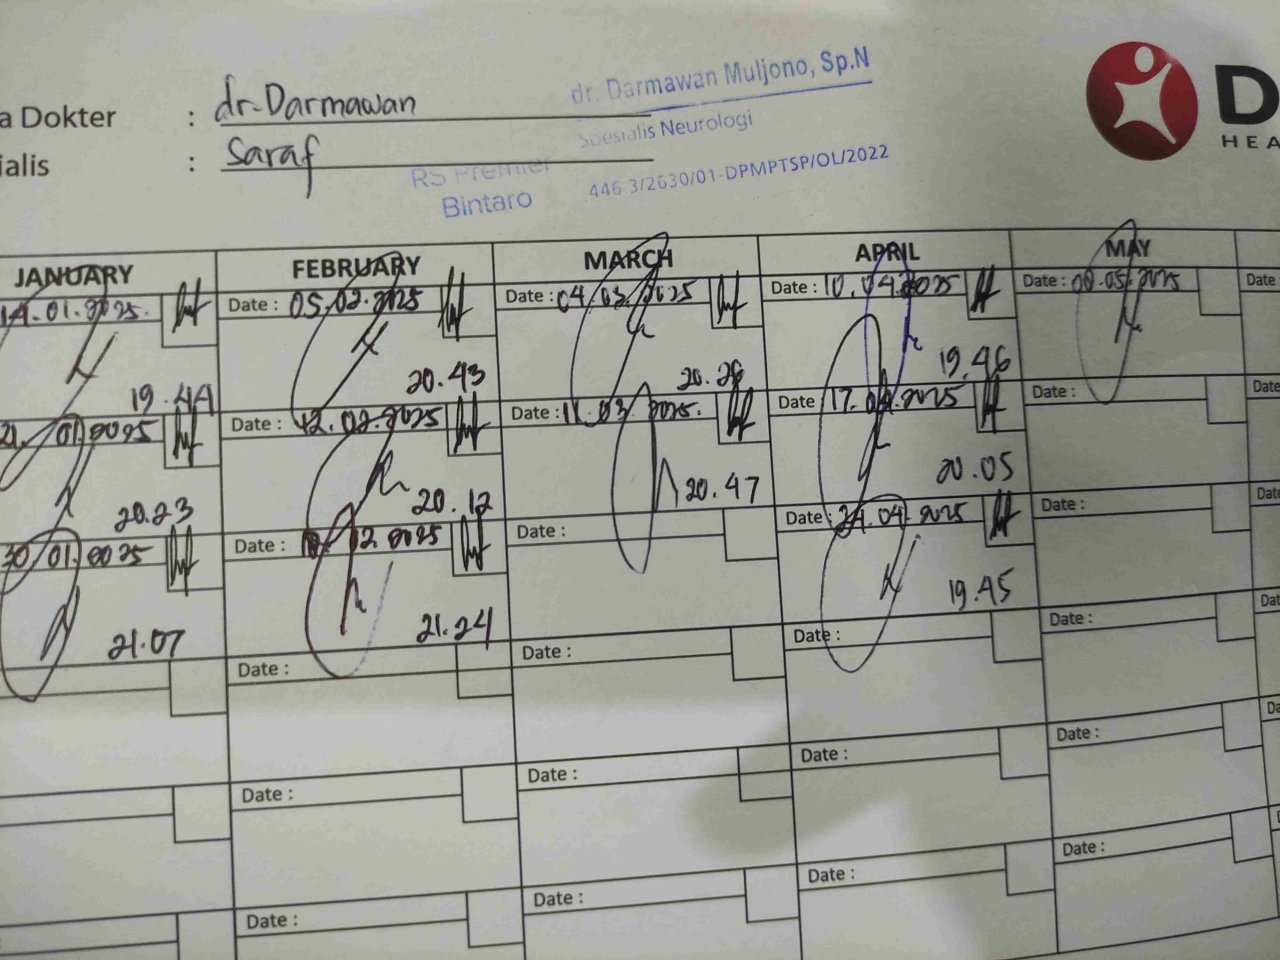 a Dokter : dr. Darmawan
ialis : Saraf
dr. Darmawan Muljono, Sp.N
Spesialis Neurologi
446.3/2630/01-DPMPTSP/OL/2022
RS Premier
Bintaro
D
HEA
JANUARY FEBRUARY MARCH APRIL MAY
14.01.2025 Date : 05.02.2025 Date : 04.03.2025 Date : 10.04.2025 Date : Date
19.44 20.43 20.28 19.46
21.01.2025 Date : 12.02.2025 Date : 11.03.2025. Date : 17.04.2025 Date : Date
20.23 20.12 20.47 20.05
30.01.2025 Date : 02.2025 Date : Date : 24.04.2025 Date :
21.07 21.24 19.45
Date : Date : Date : Date : Dat
Date : Date : Date : Date : Da
Date : Date : Date : Date :